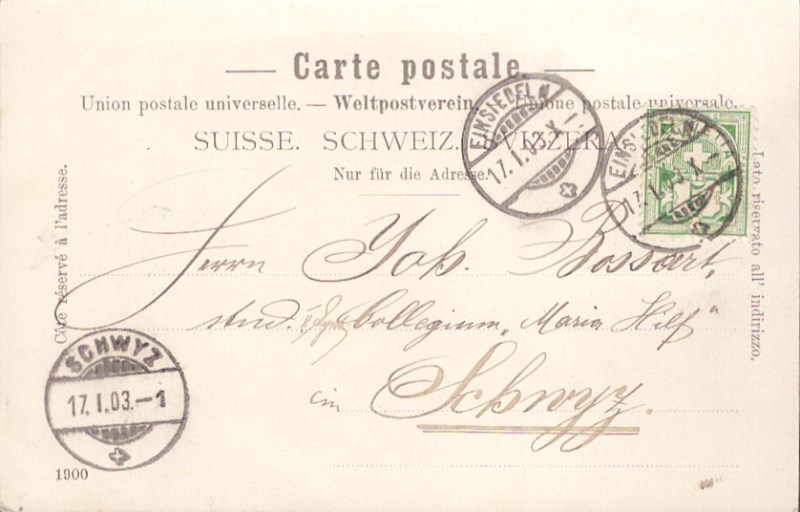 Carte postale.
Union postale universelle. — Weltpostverein. — Unione postale universale.
SUISSE. SCHWEIZ. SVIZZERA.
Nur für die Adresse.
Côté réservé à l'adresse.
Lato riservato all' indirizzo.
EINSIEDELN
17.I.03.X–
EINSIEDELN
17.I.03.X–
Herrn Joh. Bossart,
stud. Collegium „Maria Hilf"
in Schwyz.
SCHWYZ
17.I.03.–1
1900